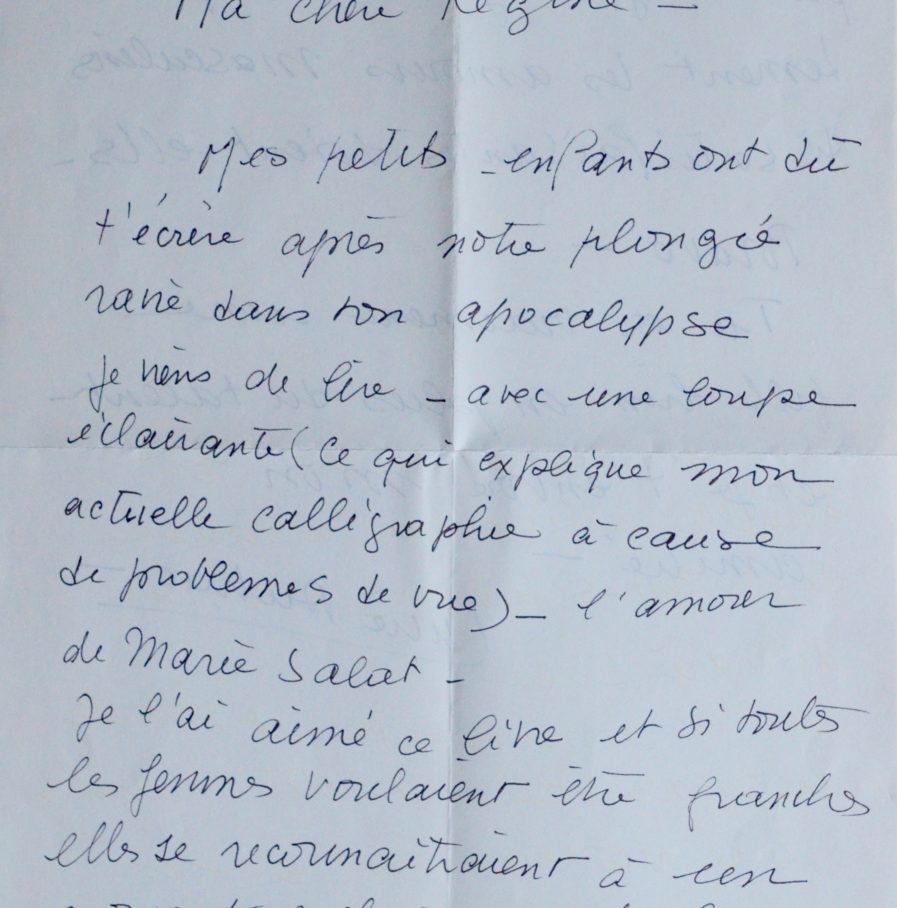 Ma chère Régine –
Mes petits-enfants ont dû
t'écrire après notre plongée
ravie dans ton apocalypse
je viens de lire – avec une loupe
éclairante (ce qui explique mon
actuelle calligraphie à cause
de problèmes de vue) – l'amour
de Marie Salat –
Je l'ai aimé ce livre et si toutes
les femmes voulaient être franches
elles se reconnaîtraient à un